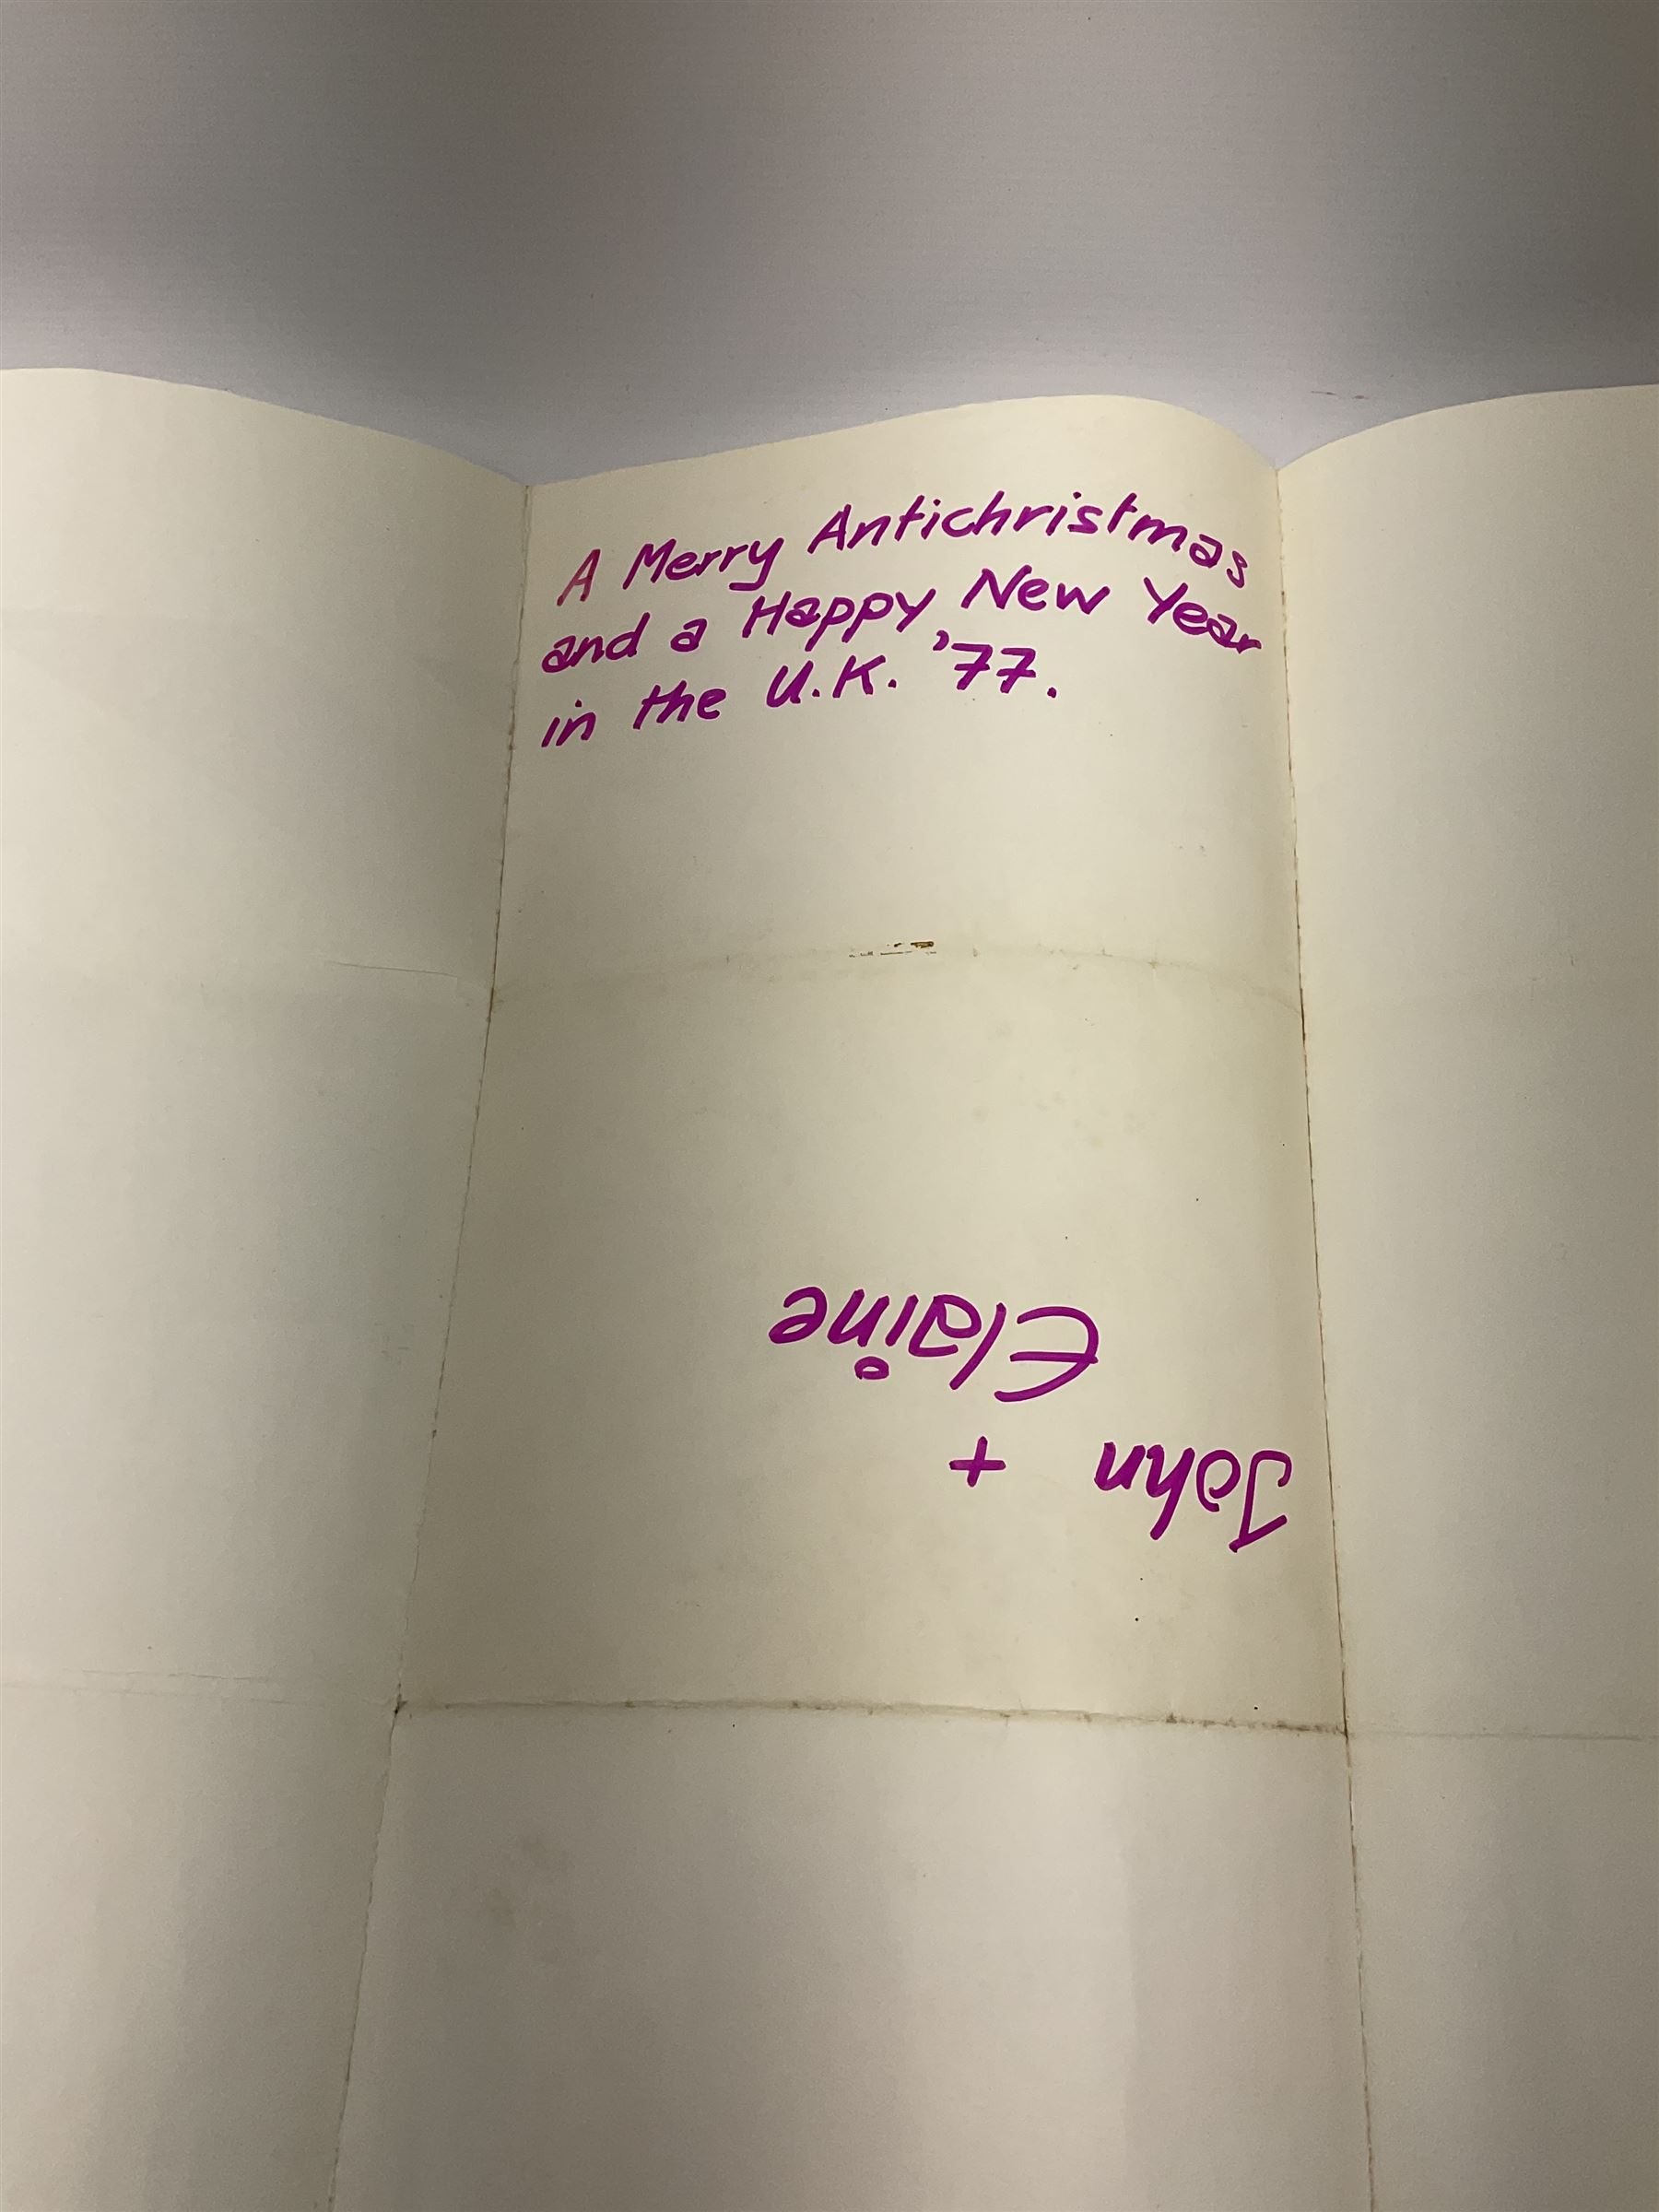 A Merry Antichristmas
and a Happy New Year
in the U.K. '77.
John +
Elaine